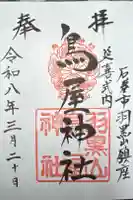 奉拝
延喜式内
石巻市羽黒山鎮座
鳥屋神社
羽黒山
神社
令和八年三月二十日